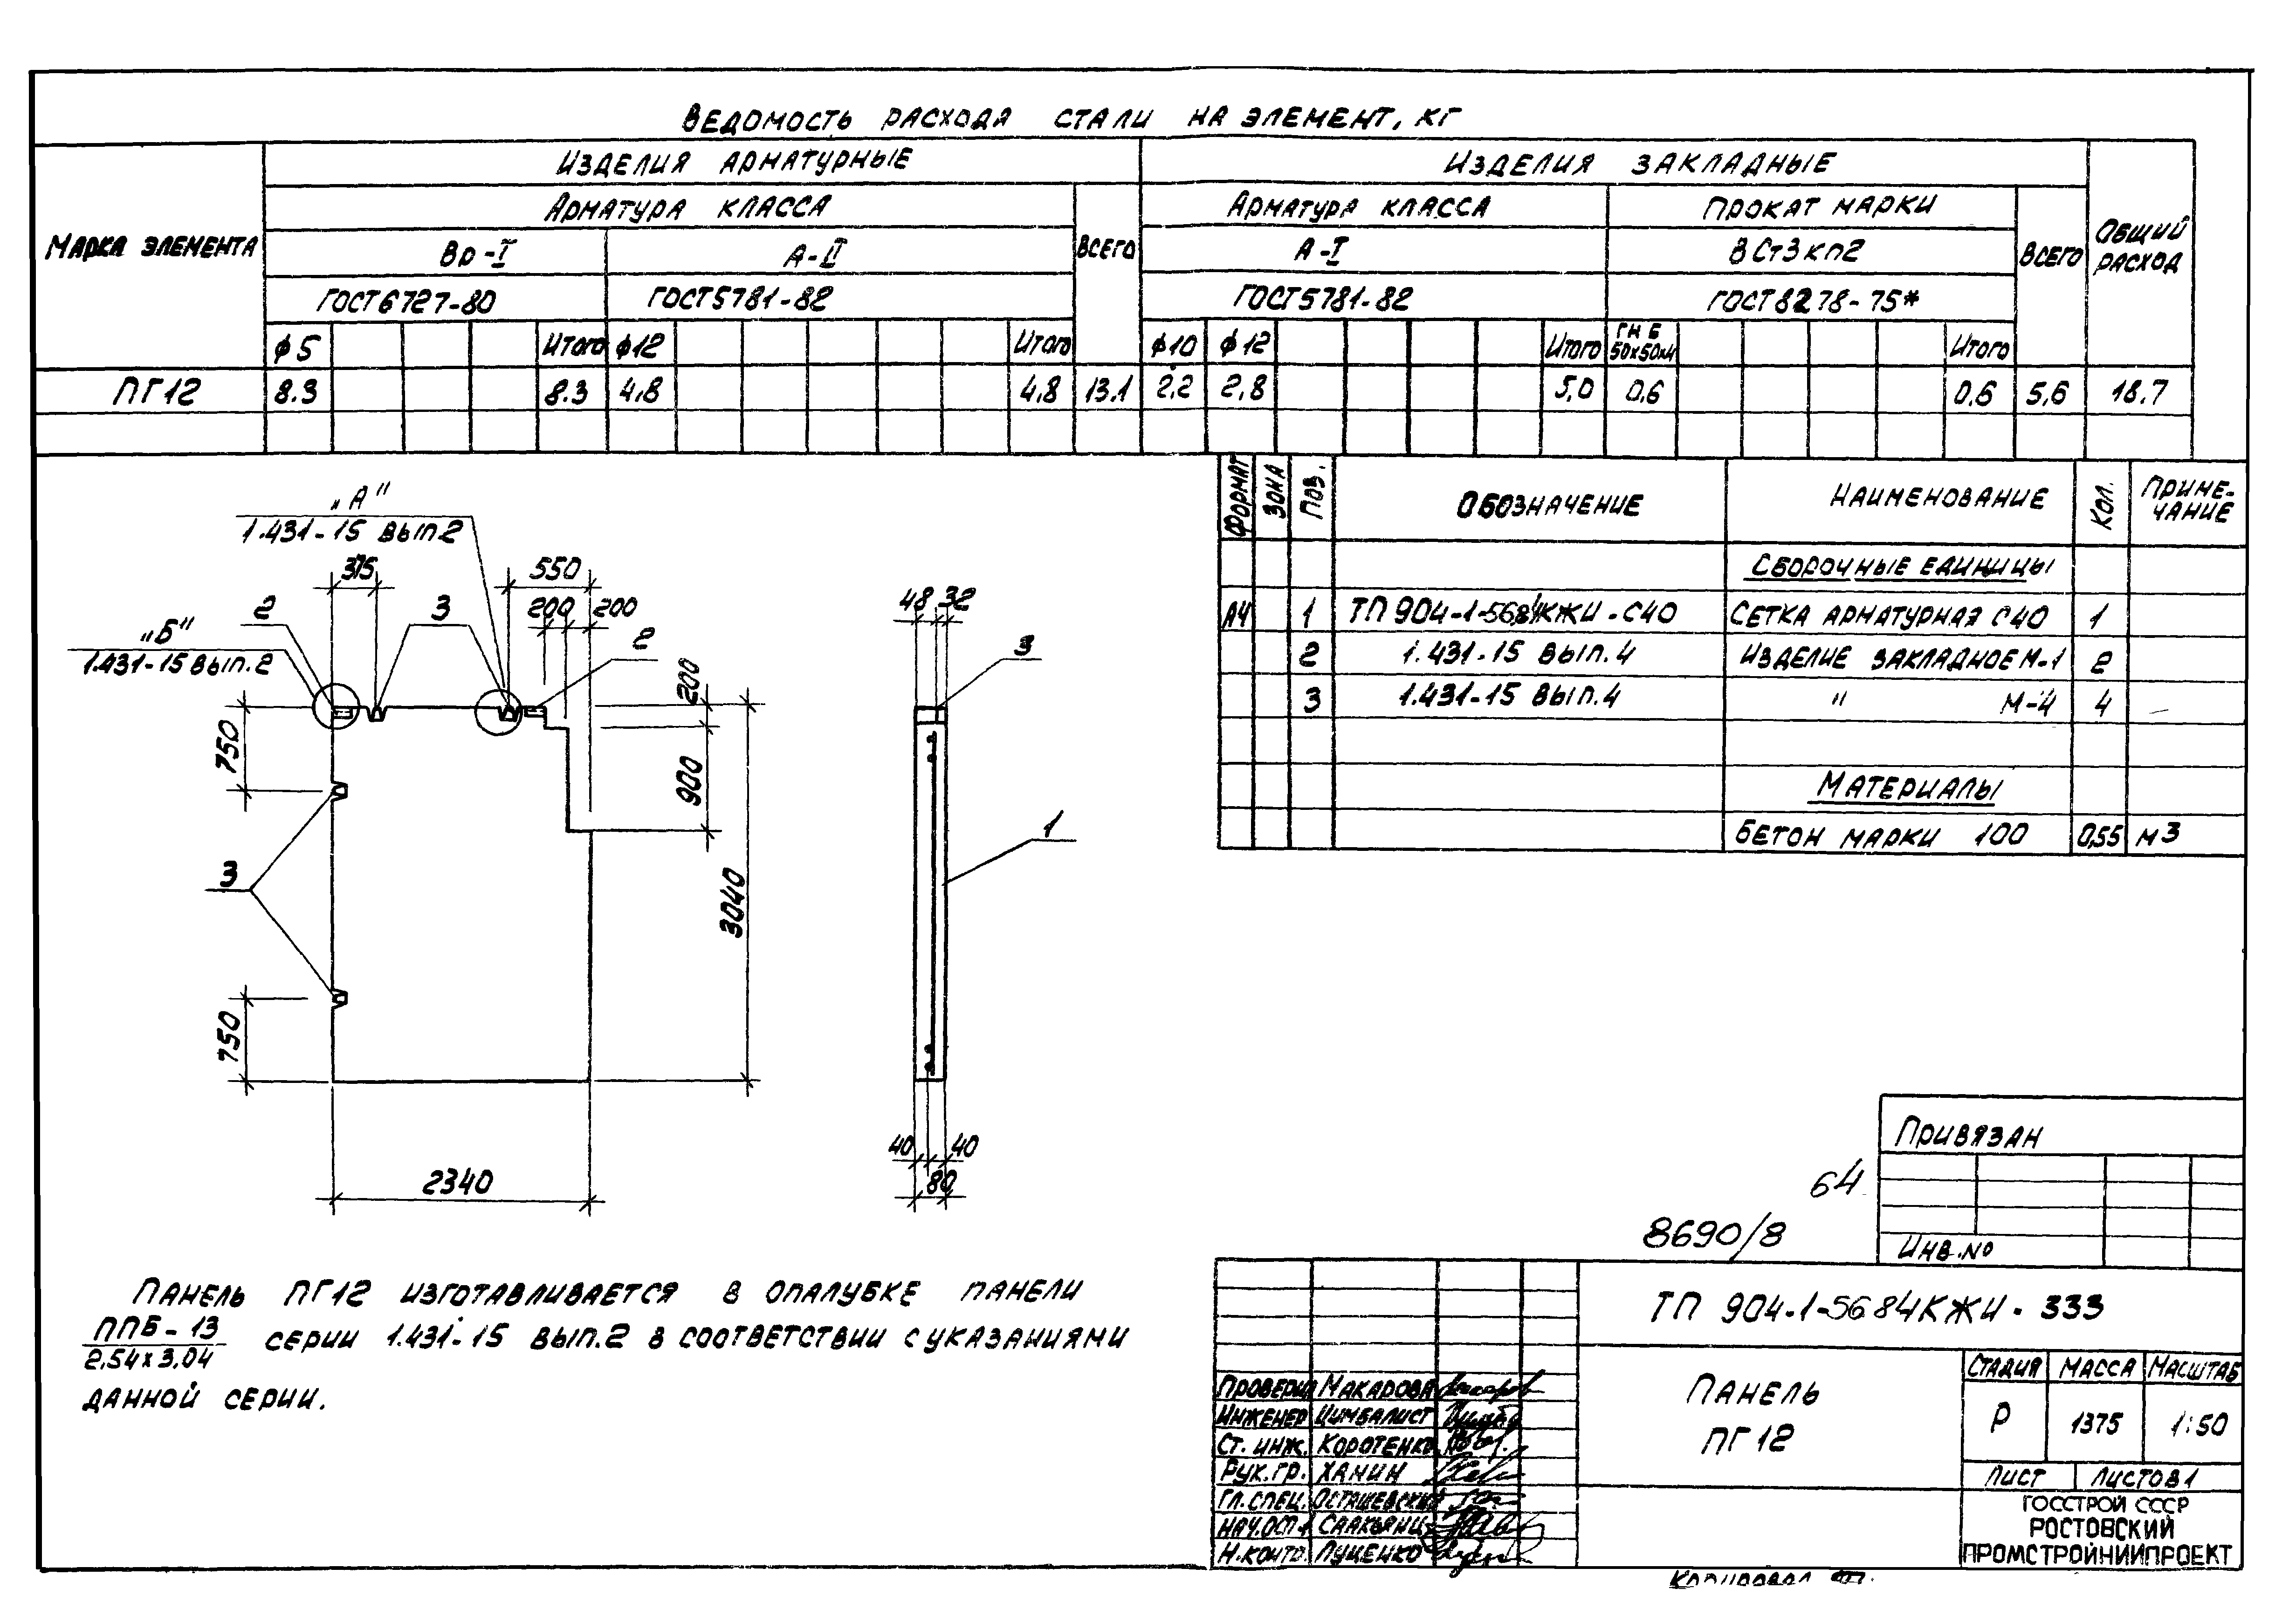 Ведомость расхода стали на элемент, кг
Марка элемента
Изделия арматурные
Изделия закладные
Общий расход
Арматура класса
Всего
Арматура класса
Прокат марки
Всего
Вр-I
А-II
А-I
ВСт3кп2
ГОСТ 6727-80
ГОСТ 5781-82
ГОСТ 5781-82
ГОСТ 8278-75*
ф5 Итого ф12 Итого ф10 ф12 Итого ГН Б 50х50х4 Итого
ПГ12 8.3 8.3 4,8 4,8 13.1 2,2 2,8 5,0 0,6 0,6 5,6 18.7
Формат Зона Поз. Обозначение Наименование Кол. Примечание
Сборочные единицы
А4 1 ТП 904-1-56.84КЖИ-С40 Сетка арматурная С40 1
2 1.431-15 вып.4 Изделие закладное М-1 2
3 1.431-15 вып.4 " М-4 4
Материалы
Бетон марки 100 0,55 м3
„А"
1.431-15 вып.2
375
550
200
200
2
3
2
„Б"
1.431-15 вып.2
200
750
900
3040
3
750
2340
48
32
3
1
40
40
80
Панель ПГ12 изготавливается в опалубке панели
ППБ-13
2,54х3,04
серии 1.431-15 вып.2 в соответствии с указаниями
данной серии.
64
8690/8
Привязан
Инв.№
ТП 904-1-5684КЖИ-333
Панель
ПГ12
Стадия Масса Масштаб
Р 1375 1:50
Лист Листов 1
Госстрой СССР
Ростовский
Промстройниипроект
Проверил Макарова
Инженер Цимбалист
Ст. инж. Коротенко
Рук.гр. Ханин
Гл.спец. Осташевский
Нач.ОСП-1 Саакьянц
Н.контр. Луценко
Копировал